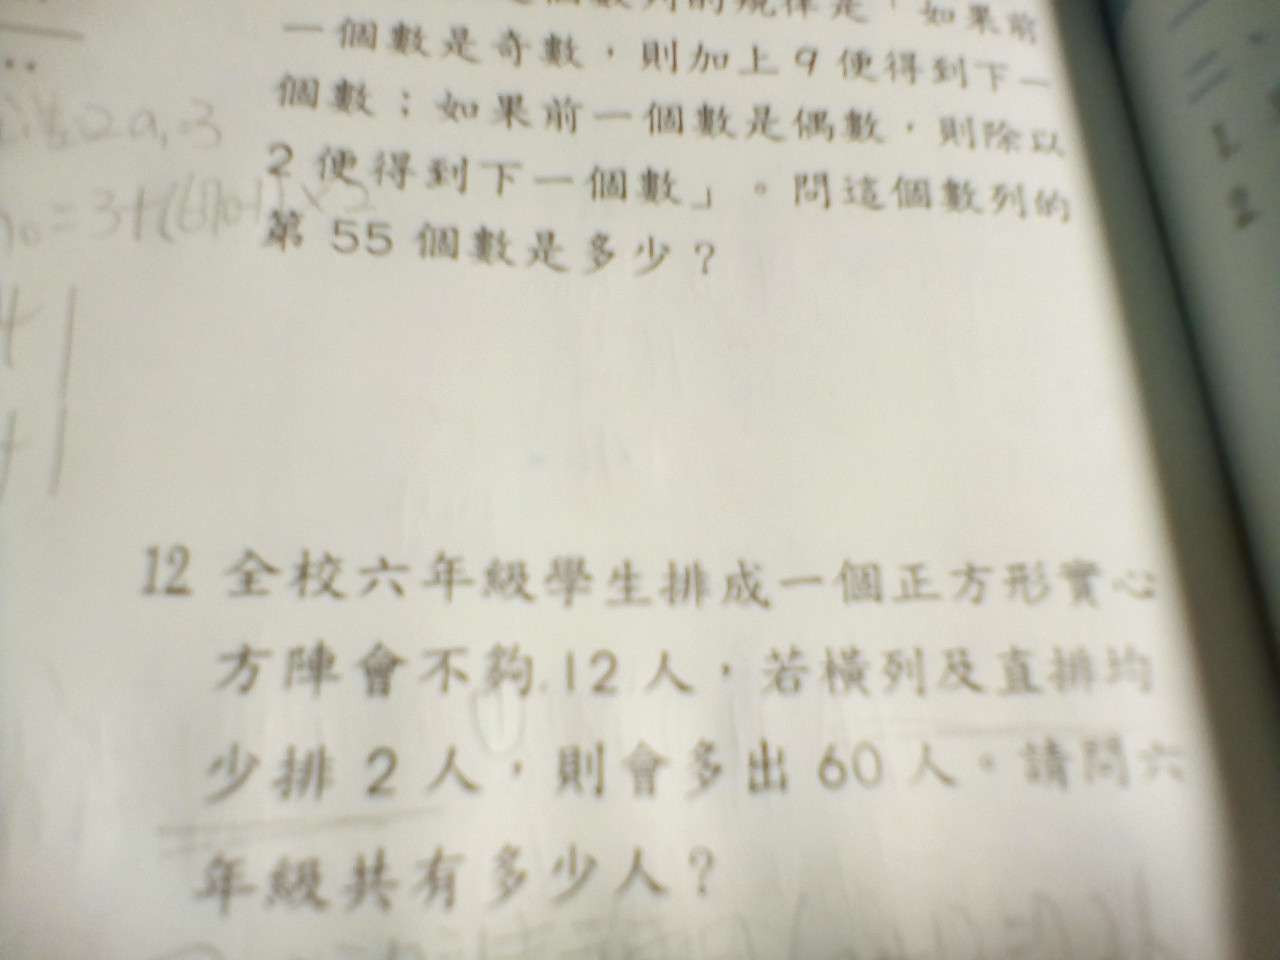 數列的規律是「如果前
一個數是奇數，則加上9便得到下一
個數；如果前一個數是偶數，則除以
2便得到下一個數」。問這個數列的
第55個數是多少？
12 全校六年級學生排成一個正方形實心
方陣會不夠12人，若橫列及直排均
少排2人，則會多出60人。請問六
年級共有多少人？